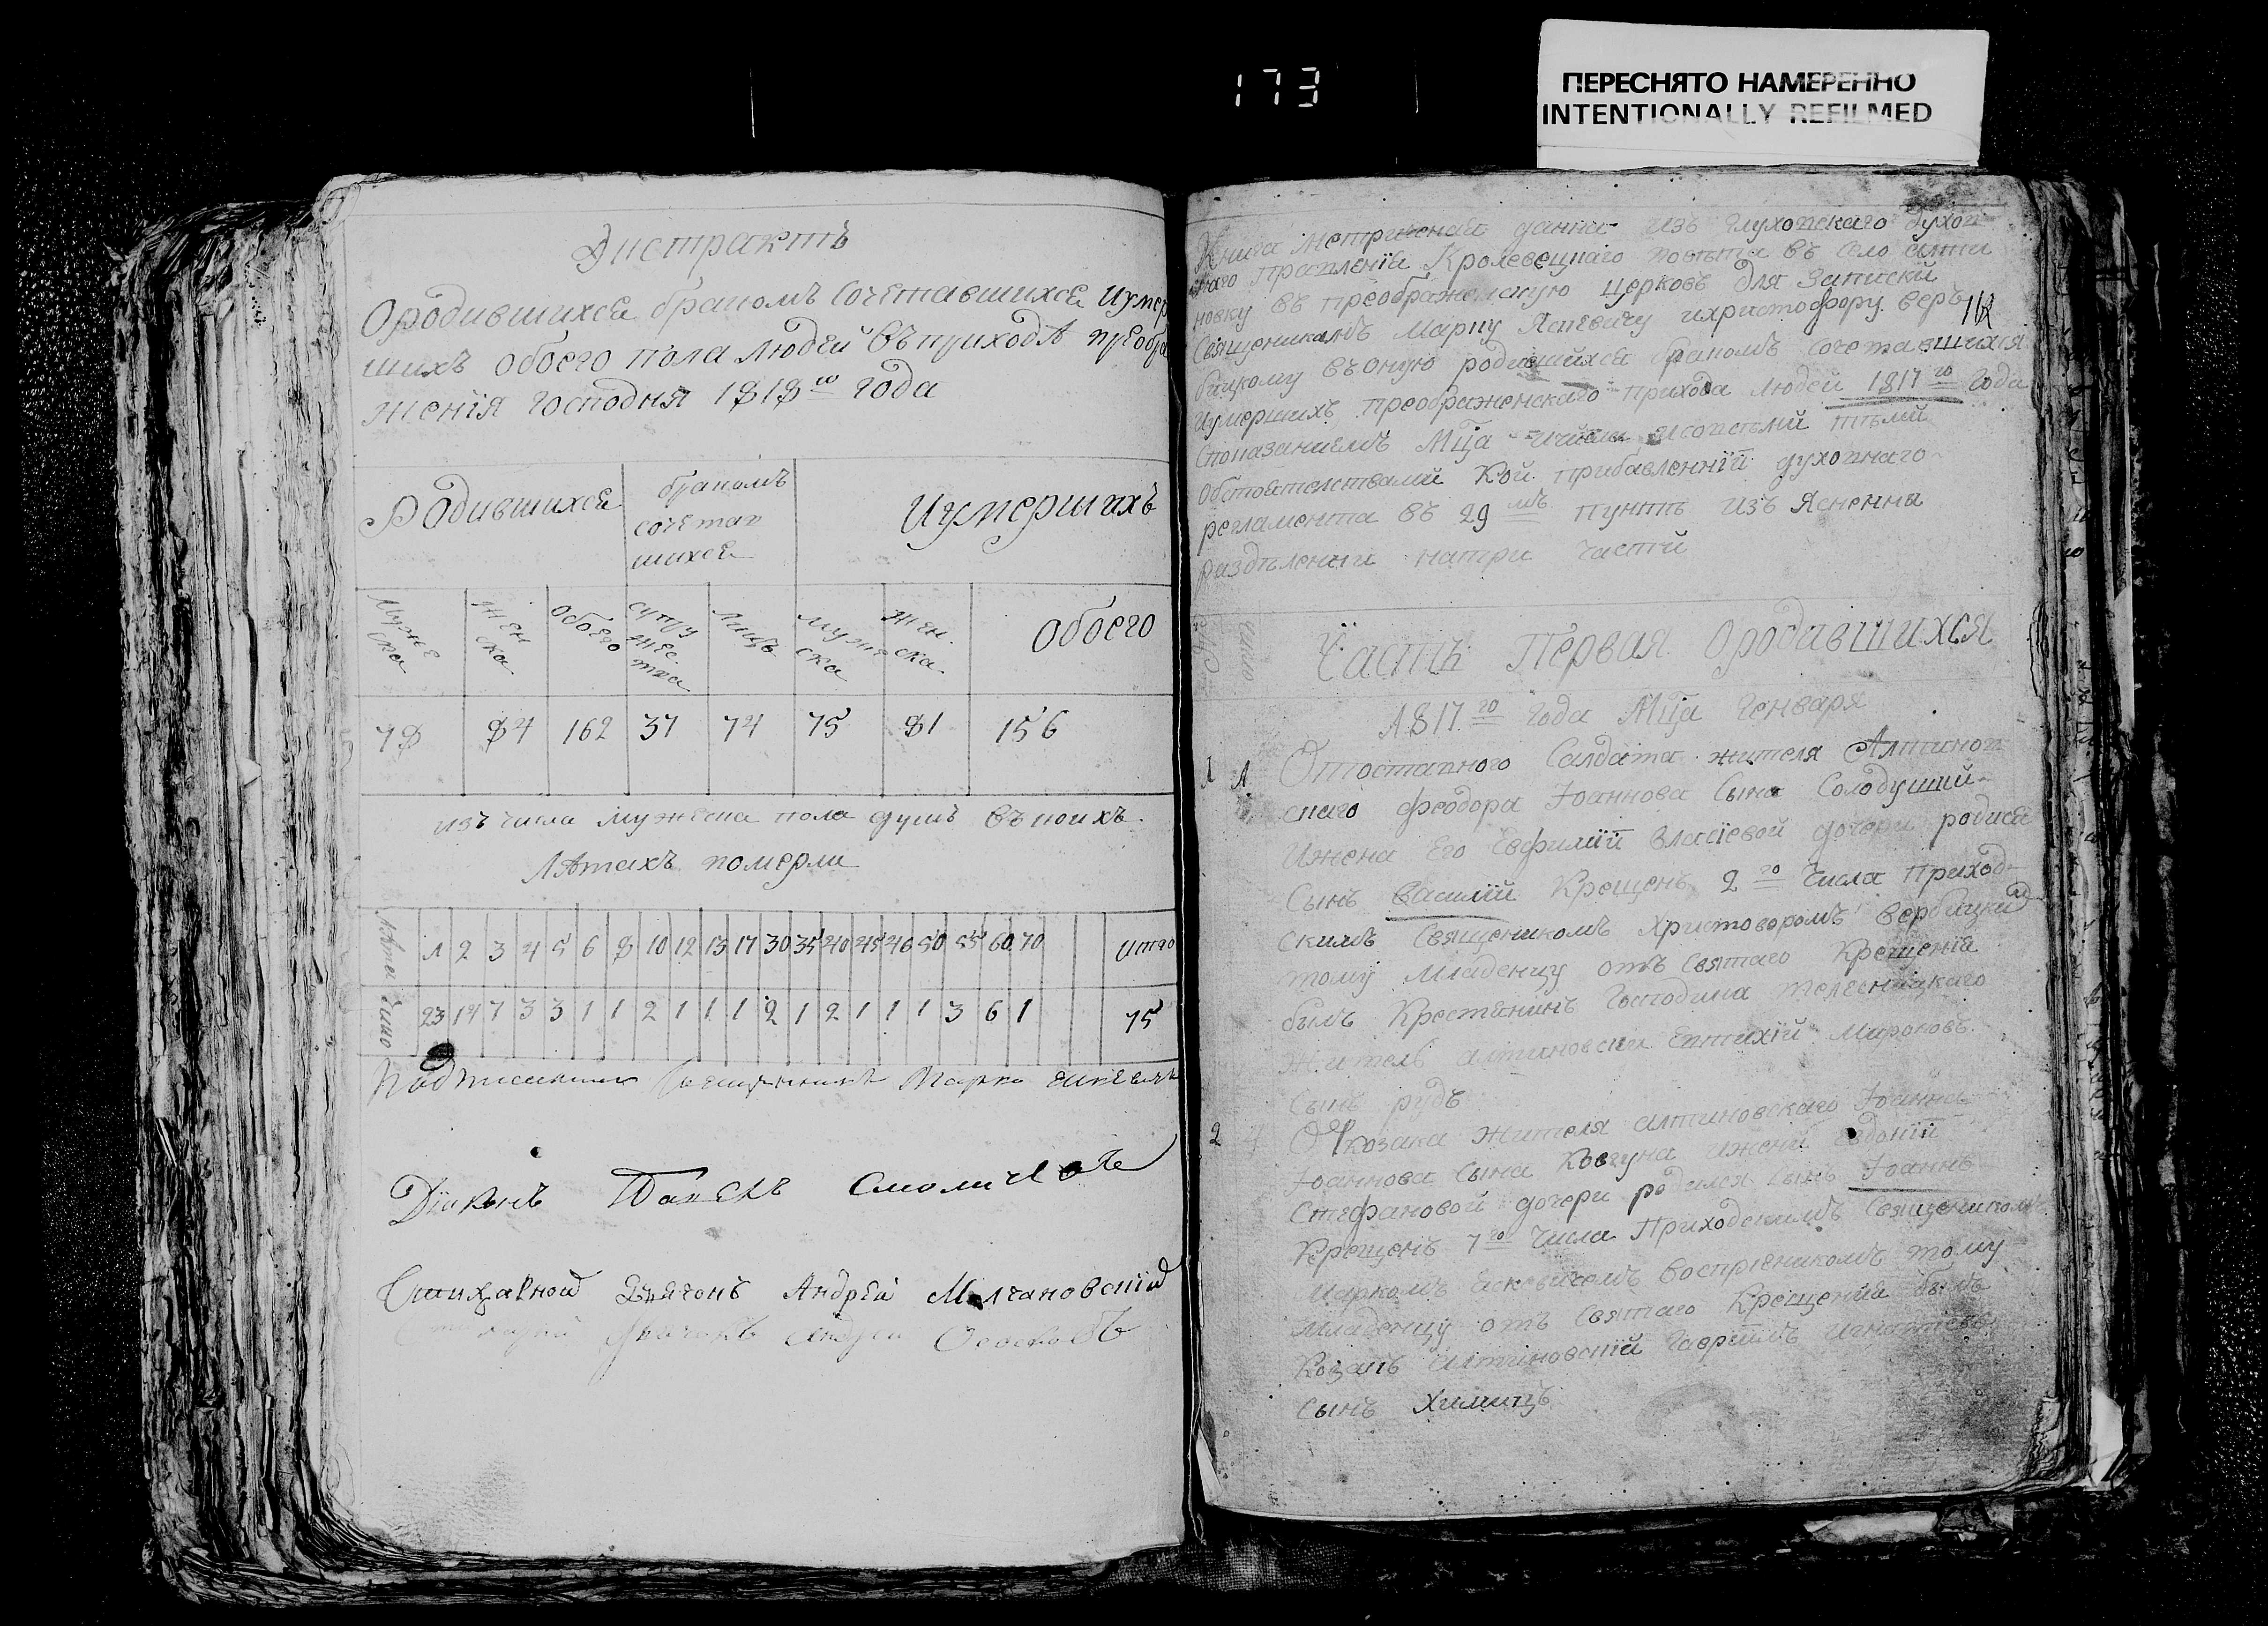 173
ПЕРЕСНЯТО НАМЕРЕННО
INTENTIONALLY REFILMED
Экстрактъ
Ородившихся бракомъ сочетавшихся иумер
шихъ обоего пола людей въ приходѣ преобра
женія господня 1818го года
Родившихся
бракомъ
сочетав
шихся
Иумершихъ
мужеска
женска
обоего
супружества
лицъ
мужеска
женска
обоего
78 84 162 37 74 75 81 156
изъ числа мужеска пола душъ въ коихъ
лѣтахъ померли
лѣта 1 2 3 4 5 6 8 10 12 13 17 30 35 40 45 46 50 55 60 70 итого
число 23 17 7 3 3 1 1 2 1 1 1 2 1 2 1 1 1 3 6 1 75
священникъ Марко
Діаконъ
Стихарной Дьячокъ Андрей Молчановскій
Андрей
Книга метрическая данна изъ глуховскаго духов
наго правленія Кролевецкаго повѣта въ село алти
новку въ преображенскую церковь для записки
священикамъ Марку Яскевичу ихристофору верб
бицкому въ оную родившихся бракомъ сочетавшихся
118
иумершихъ преображенскаго прихода людей 1817го года
споказаніемъ Мца ичисла исовсѣми тѣми
обстоятельствами кои прибавленній духовнаго
регламента въ 29мъ пунктѣ изъ яснена
раздѣлена натри части
число
Часть Первая Ородившихся
1817го года Мца Генваря
1 1 Отоставного Салдата жителя Алтинов
скаго феодора Іоаннова Сына Солодушій
ижена его Евфимій Власіевой дочери родися
Сынъ Василій Крещенъ 2го Числа Приход
скимъ Священикомъ Христофоромъ вербицкимъ
тому Младенцу отъ Святаго Крещенія
былъ Крестянинъ Господина телесницкаго
житель алтиновски Евтихій Мироновъ
Сынъ рудъ
2 Отъ козака Жителя алтиновскаго Іоанна
Іоаннова Сына Ковгуна ижени евдокій
Стефановой дочери родился сынъ Іоаннъ
Крещенъ 7го Числа Приходскимъ Священикомъ
Маркомъ Яскевичемъ воспріеникомъ тому
Младенцу отъ Святаго Крещенія былъ
Козакъ алтиновскій Гавріилъ игнатіевъ
Сынъ Химицъ